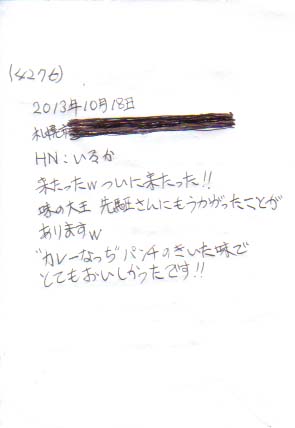 (4276)
2013年10月18日
札幌市
HN:いるか
来たったwついに来たった!!
味の大王 先駆さんにもうかがったことが
ありますw
"カレーなっぢ"パンチのきいた味で
とてもおいしかったです!!